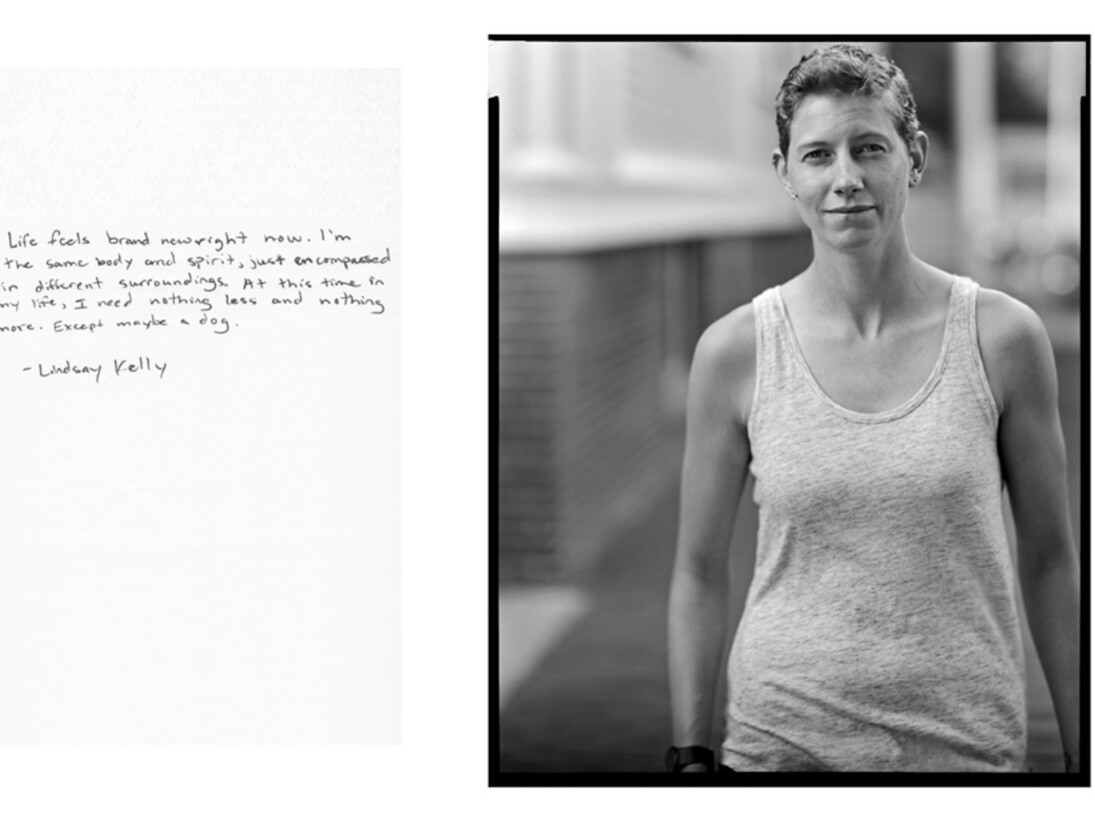 Life feels brand new right now. I'm
the same body and spirit, just encompassed
in different surroundings. At this time in
my life, I need nothing less and nothing
more. Except maybe a dog.
- Lindsay Kelly